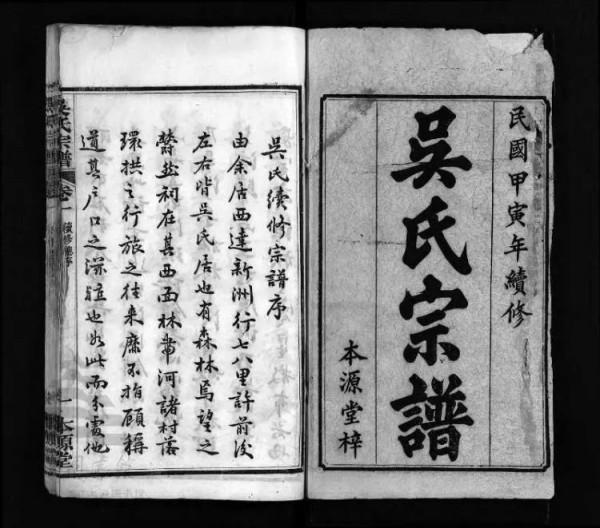 民國甲寅年續修
吳氏宗譜
本源堂梓
吳氏續修宗譜序
由余居西達新洲行七八里許前後
左右皆吳氏居也有森林焉望之
欝然祠在其西西林帶河諸村落
環拱之行旅之往來靡不指顧稱
道其戶口之深殖也如此而分處他
吳氏宗譜
卷一
續修譜序
一
本源堂